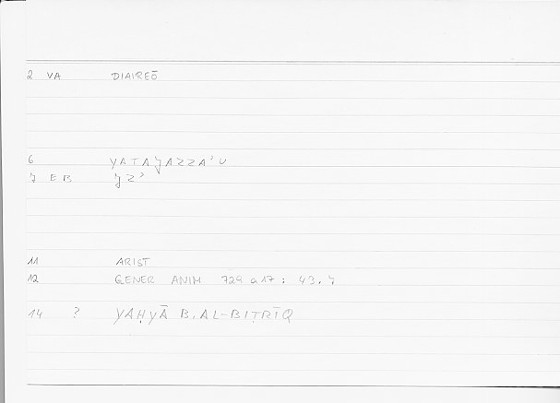 2 VA DIAIREŌ
6 YATAJAZZA'U
7 EB JZ'
11 ARIST
12 GENER ANIM 729a17: 43.7
14 ? YAḤYĀ B. AL-BIṬRĪQ